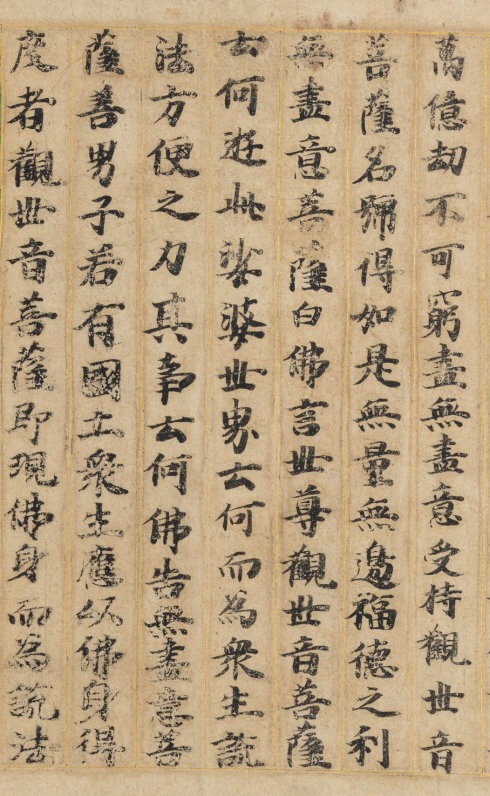 萬億劫不可窮盡無盡意受持觀世音
菩薩名號得如是無量無邊福德之利
無盡意菩薩白佛言世尊觀世音菩薩
云何遊此娑婆世界云何而為衆生說
法方便之力其事云何佛告無盡意菩
薩善男子若有國土衆生應以佛身得
度者觀世音菩薩即現佛身而為說法